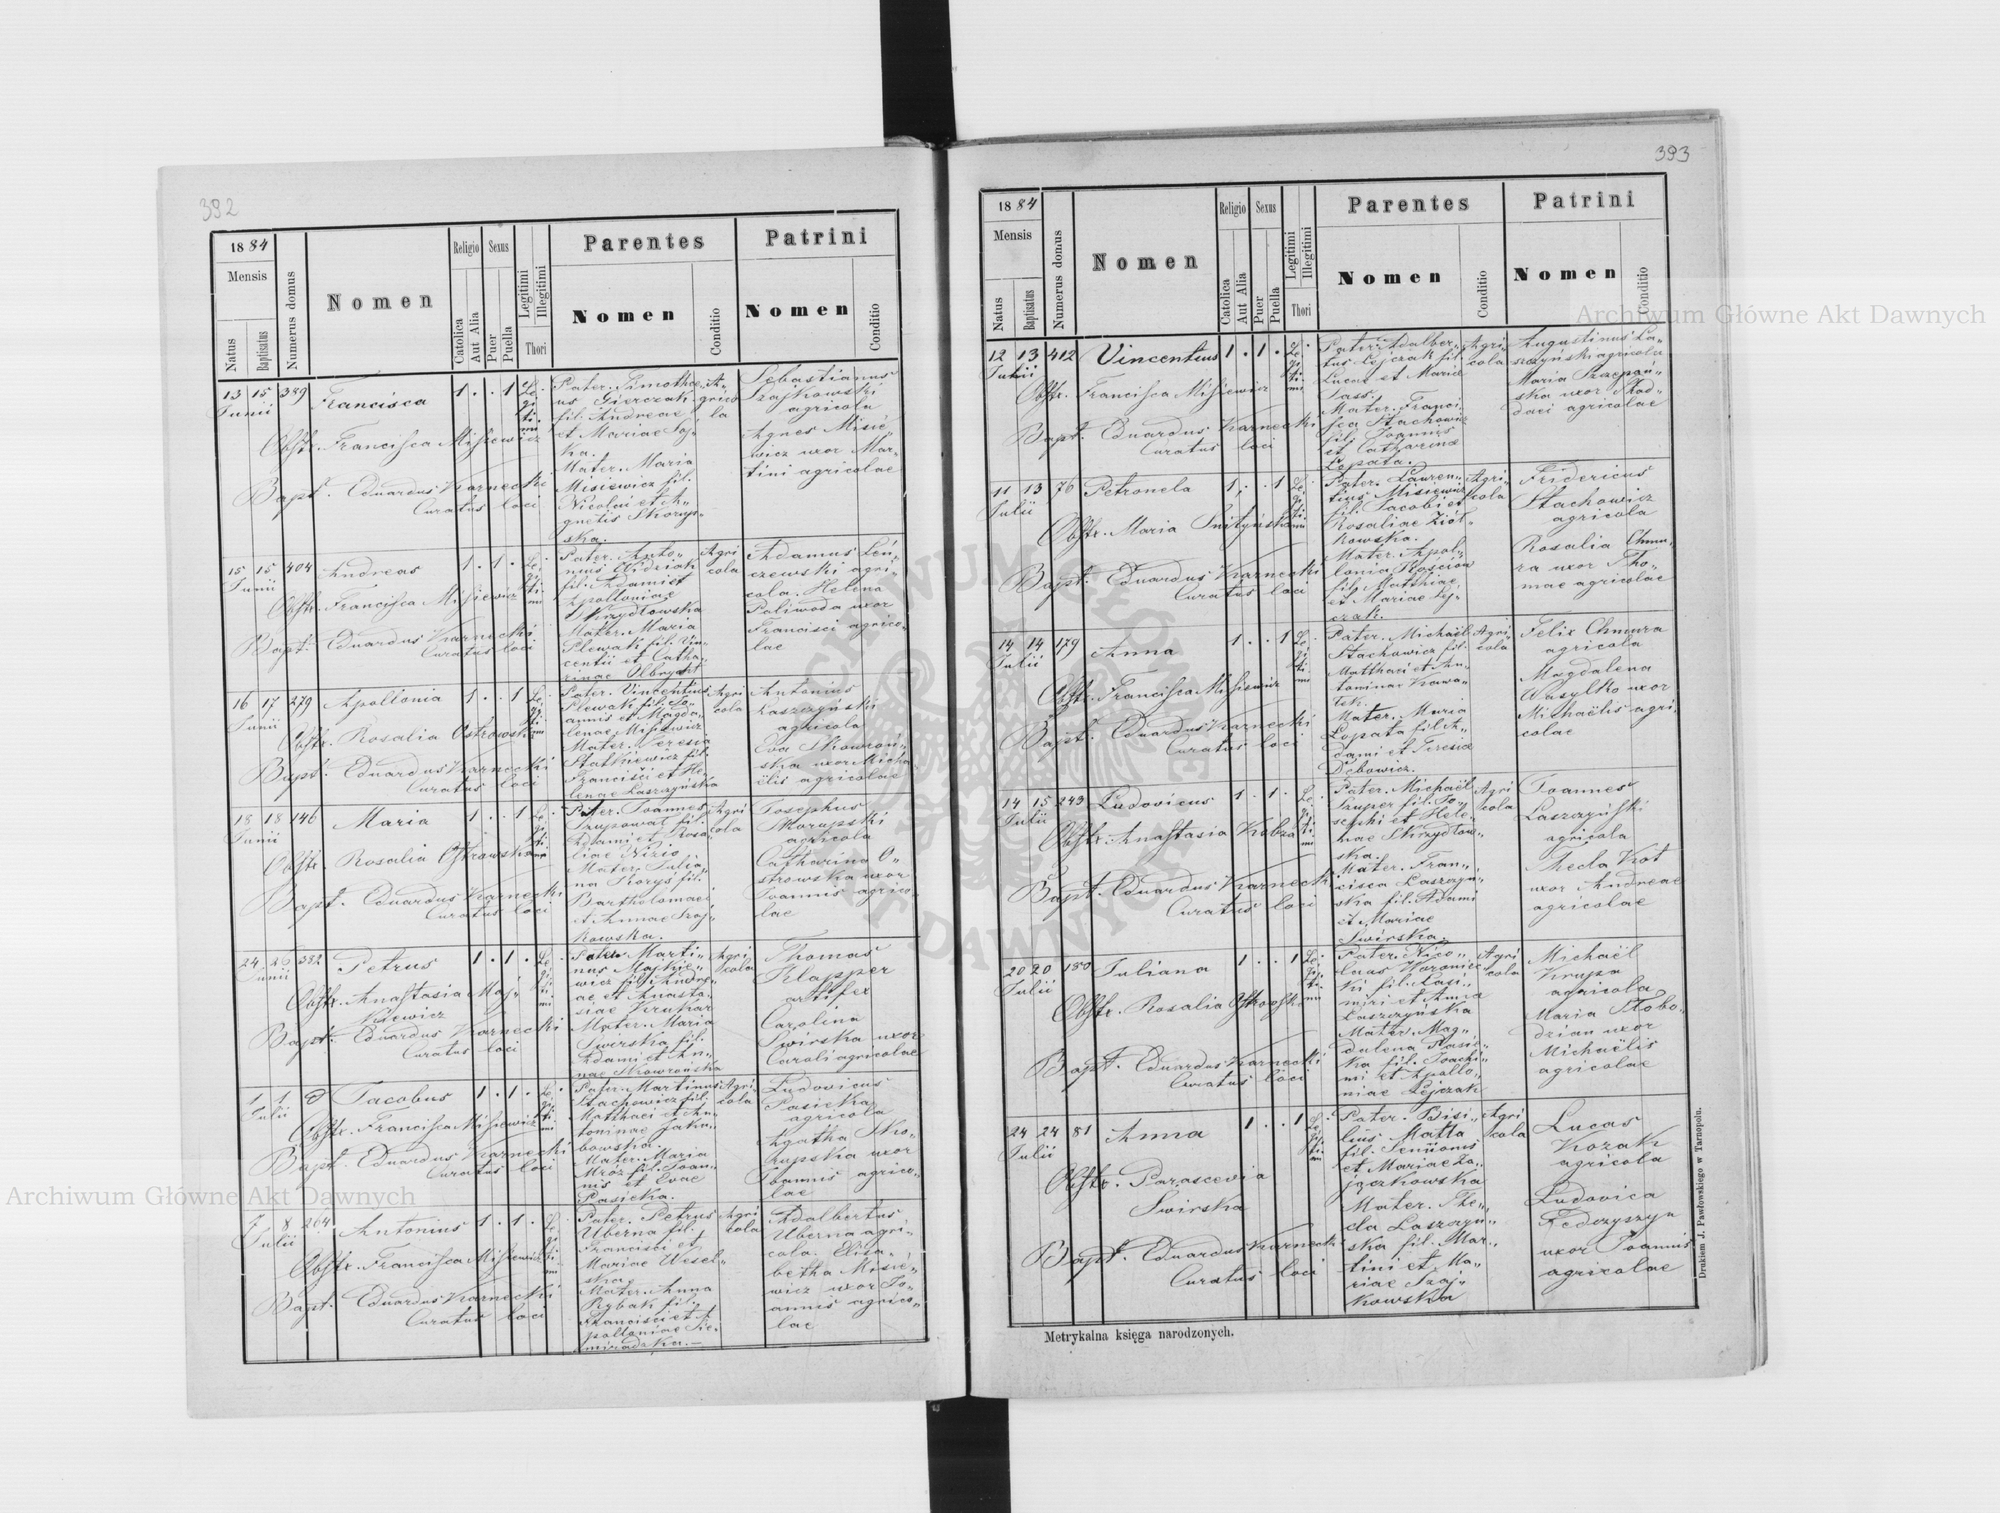 392
18 84
Mensis
Natus
Baptisatus
Numerus domus
Nomen
Religio
Catolica
Aut Alia
Sexus
Puer
Puella
Legitimi
Illegitimi
Thori
Parentes
Nomen
Conditio
Patrini
Nomen
Conditio
13 15 389 Francisca 1 . . 1 Le-
Junii
gi
ti
mi
Obstr. Francisca Misiewicz
Bapt. Eduardus Karnecki
Curatus loci
Pater. Timothe-
us Gierczak
fil. Andreae
et Mariae Soj-
ka.
Mater. Maria
Misiewicz fil.
Nicolai et A-
gnetis Skorup-
ska.
A-
grico
la
Sebastianus
Szajkowski
agricola
Agnes Misie-
wicz uxor Mar-
tini agricolae
15 15 404 Andreas 1 . 1 . Le-
Junii
gi
ti
mi
Obstr. Francisca Misiewicz
Bapt. Eduardus Karnecki
Curatus loci
Pater. Anto-
nius
fil. Adami et
Apolloniae
Skrzydłowska
Mater. Maria
Plewak fil. Vin-
centii et Catha-
rinae Olbrycht
Agri
cola
Adamus Len-
czewski agri-
cola. Helena
Paliwoda uxor
Francisci agrico-
lae
16 17 279 Apollonia 1 . . 1 Le-
Junii
gi
ti
mi
Obstr. Rosalia Ostrowska
Bapt. Eduardus Karnecki
Curatus loci
Pater. Vincentius
Plewak fil. Jo-
annis et Magda-
lenae Misiewicz
Mater. Teresia
Statkiewicz fil.
Francisci et He-
lenae Laszczyńska
Agri
cola
Antonius
Laszczyński
agricola
Eva Skowroń-
ska uxor Micha-
ëlis agricolae
18 18 146 Maria 1 . . 1 Le-
Junii
gi
ti
mi
Obstr. Rosalia Ostrowska
Bapt. Eduardus Karnecki
Curatus loci
Pater. Joannes
Szupował fil.
Adami et Rosa
liae
Mater. Julia-
na Koryś fil.
Bartholomaei
et Annae Szaj-
kowska.
Agri
cola
Josephus
Skorupski
agricola
Catharina O-
strowska uxor
Joannis agrico-
lae
24 26 382 Petrus 1 . 1 . Le-
Junii
gi
ti
mi
Obstr. Anastasia Maj-
kiewicz
Bapt. Eduardus Karnecki
Curatus loci
Pater Marti-
nus Majkie-
wicz fil. Andre-
ae et Anasta-
siae Krukar
Mater. Maria
Swirska fil.
Adami et An-
nae Skowrońska
Agri
cola
Thomas
Klapper
artifex
Carolina
Swirska uxor
Caroli agricolae
1 1 Jacobus 1 . 1 . Le-
Julii
gi
ti
mi
Obstr. Francisca Misiewicz
Bapt. Eduardus Karnecki
Curatus loci
Pater. Martinus
Stachowicz fil.
Matthaei et An-
toninae Jaku-
bowska.
Mater. Maria
Mróz fil. Joan-
nis et Evae
Pasieka.
Agri-
cola
Ludovicus
Pasieka
agricola
Agatha Sko-
rupska uxor
Joannis agrico-
lae
7 8 264 Antonius 1 . 1 . Le-
Julii
gi
ti
mi
Obstr. Francisca Misiewicz
Bapt. Eduardus Karnecki
Curatus loci
Pater. Petrus
Uberna fil.
Francisci et
Mariae Wesel-
ska.
Mater. Anna
Rybak fil.
Francisci et A-
polloniae Sie-
miradzka.
Agri
cola
Adalbertus
Uberna agri-
cola. Elisa-
betha Misie-
wicz uxor Jo-
annis agrico-
lae
393
18 84
Mensis
Natus
Baptisatus
Numerus domus
Nomen
Religio
Catolica
Aut Alia
Sexus
Puer
Puella
Legitimi
Illegitimi
Thori
Parentes
Nomen
Conditio
Patrini
Nomen
Conditio
12 13 412 Vincentius 1 . 1 . Le-
Julii
gi
ti
mi
Obstr. Francisca Misiewicz
Bapt. Eduardus Karnecki
Curatus loci
Pater. Adalber-
tus Lejczak fil.
Lucae et Mariae
Sass.
Mater. Franci-
sca Stachowicz
fil. Joannis
et Catharinae
Łopata.
Agri-
cola
Augustinus La-
szczyński agricola
Maria Szczepań-
ska uxor Thad-
daei agricolae
11 13 76 Petronela 1 . . 1 Le-
Julii
gi
ti
mi
Obstr. Maria Snityńska
Bapt. Eduardus Karnecki
Curatus loci
Pater. Lauren-
tius Misiewicz
fil. Jacobi et
Rosaliae Ziół-
kowska.
Mater. Apol-
lonia Kościów
fil. Matthiae
et Mariae Lej-
czak.
Agri-
cola
Fridericus
Stachowicz
agricola
Rosalia Chmu-
ra uxor Tho-
mae agricolae
14 14 179 Anna 1 . . 1 Le-
Julii
gi
ti
mi
Obstr. Francisca Misiewicz
Bapt. Eduardus Karnecki
Curatus loci
Pater. Michaël
Stachowicz fil.
Matthaei et An-
toninae Kawa-
Mater. Maria
Łopata fil. A-
dami et Teresiae
Dębowicz.
Agri
cola
Felix Chmura
agricola
Magdalena
Wasylko uxor
Michaëlis agri-
colae
14 15 243 Ludovicus 1 . 1 . Le-
Julii
gi
ti
mi
Obstr. Anastasia Kobza
Bapt. Eduardus Karnecki
Curatus loci
Pater. Michaël
Szuper fil. Jo-
sephi et Hele-
nae Skrzydłow-
ska.
Mater. Fran-
cisca Laszczyń-
ska fil. Adami
et Mariae
Swirska.
Agri
cola
Joannes
Laszczyński
agricola
Thecla Kot
uxor Andreae
agricolae
20 20 180 Juliana 1 . . 1 Le-
Julii
gi
ti
mi
Obstr. Rosalia Ostrowska
Bapt. Eduardus Karnecki
Curatus loci
Pater. Nico-
laus Woroniec-
ki fil. Casi-
miri et Anna
Laszczyńska
Mater. Mag-
dalena Pasie-
ka fil. Joachi-
mi et Apollo-
niae Lejczak
Agri
cola
Michaël
Krupa
agricola
Maria Słobo-
dzian uxor
Michaëlis
agricolae
24 24 81 Anna 1 . . 1 Le-
Julii
gi
ti
mi
Obstr. Parascevia
Swirska
Bapt. Eduardus Karnecki
Curatus loci
Pater. Basi-
lius Matla
fil. Semionis
et Mariae Za-
jączkowska
Mater. The-
cla Laszczyń-
ska fil. Mar-
tini et Ma-
riae Szaj-
kowska
Agri
cola
Lucas
Kozak
agricola
Ludovica
Fedczyszyn
uxor Joannis
agricolae
Metrykalna księga narodzonych.
Drukiem J. Pawłowskiego w Tarnopolu.
Archiwum Główne Akt Dawnych
Archiwum Główne Akt Dawnych
ARCHIWUM GŁÓWNE AKT DAWNYCH